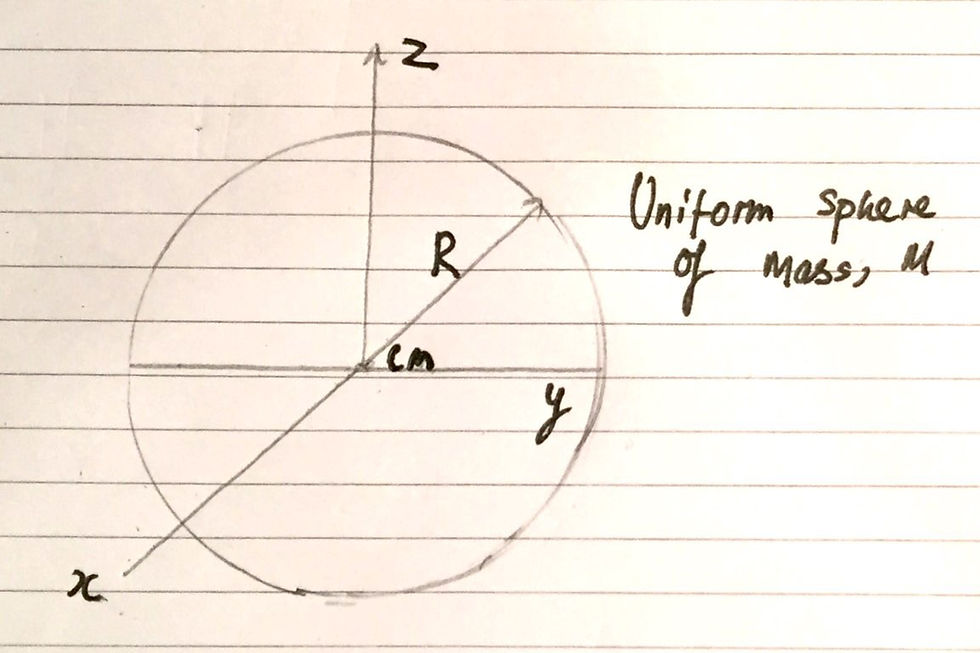 z
Uniform sphere
of mass, M
R
cm
y
x